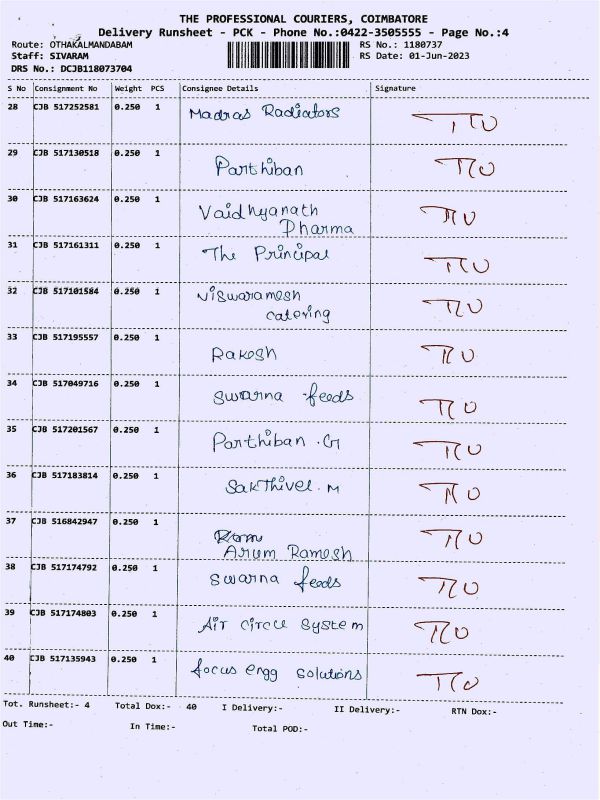 THE PROFESSIONAL COURIERS, COIMBATORE
Delivery Runsheet - PCK - Phone No.:0422-3505555 - Page No.:4
Route: OTHAKALMANDABAM RS No.: 1180737
Staff: SIVARAM RS Date: 01-Jun-2023
DRS No.: DCJB118073704
S No Consignment No Weight PCS Consignee Details Signature
28 CJB 517252581 0.250 1 Madras Radiators
29 CJB 517130518 0.250 1 Parthiban
30 CJB 517163624 0.250 1 Vaidhyanath
Dharma
31 CJB 517161311 0.250 1 The Principal
32 CJB 517101584 0.250 1 Viswaramesh
catering
33 CJB 517195557 0.250 1 Rakesh
34 CJB 517049716 0.250 1 Swarna feeds
35 CJB 517201567 0.250 1 Parthiban .G
36 CJB 517183814 0.250 1 Sakthivel. M
37 CJB 516842947 0.250 1
Arum Ramesh
38 CJB 517174792 0.250 1 Swarna feeds
39 CJB 517174803 0.250 1 Air circle system
40 CJB 517135943 0.250 1 focus engg solutions
Tot. Runsheet:- 4 Total Dox:- 40 I Delivery:- II Delivery:- RTN Dox:-
Out Time:- In Time:- Total POD:-